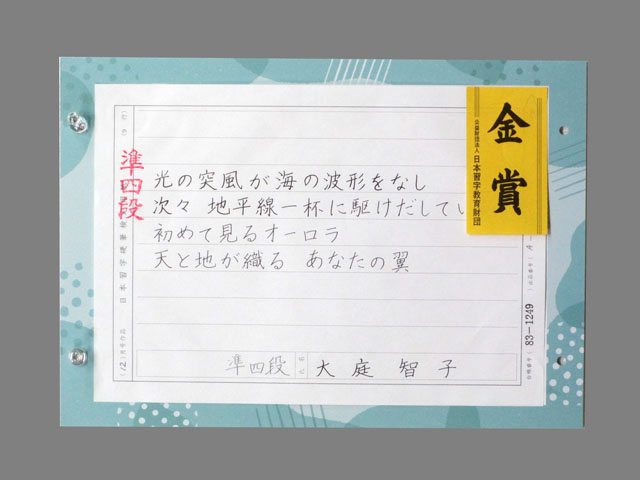 金賞
公益財団法人 日本習字教育財団
準四段
光の突風が海の波形をなし
次々 地平線一杯に駆けだしてい
初めて見るオーロラ
天と地が織る あなたの翼
準四段 氏名 大庭 智子
(12)月号作品 日本習字硬筆
83-1249